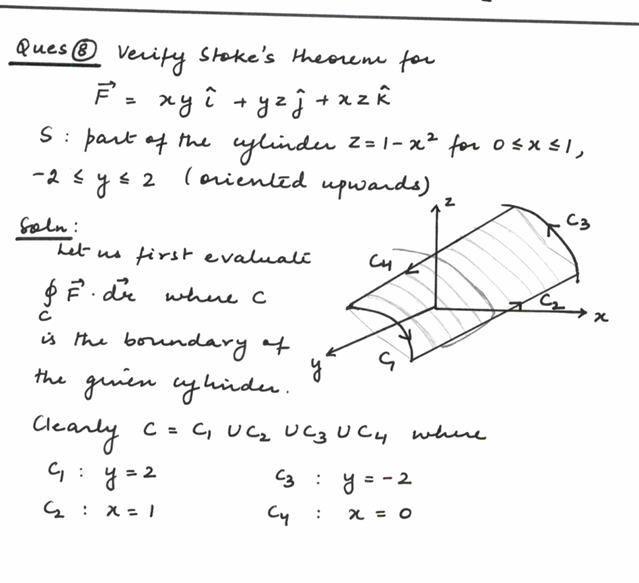 Ques ⑧ Verify Stoke's theorem for
F⃗ = xy î + yz ĵ + xz k̂
S : part of the cylinder z = 1 - x² for 0 ≤ x ≤ 1,
-2 ≤ y ≤ 2 (oriented upwards)
Soln:
Let us first evaluate
∮_C F⃗ · dr⃗ where C
is the boundary of
the given cylinder.
z
C3
C4
C2
x
y
C1
Clearly C = C1 ∪ C2 ∪ C3 ∪ C4 where
C1 : y = 2 C3 : y = -2
C2 : x = 1 C4 : x = 0